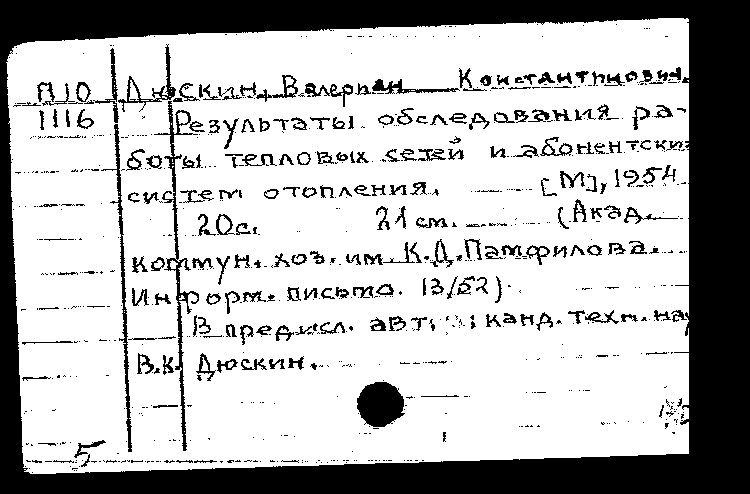 П10 Дюскин, Валериан Константинович.
1116 Результаты обследования ра-
боты тепловых сетей и абонентских
систем отопления. [М], 1954
20с. 21см. (Акад.
коммун. хоз. им. К.Д.Памфилова.
Информ. письмо. 13/52).
В предисл. авт.: канд. техн. нау
В.К. Дюскин.
5